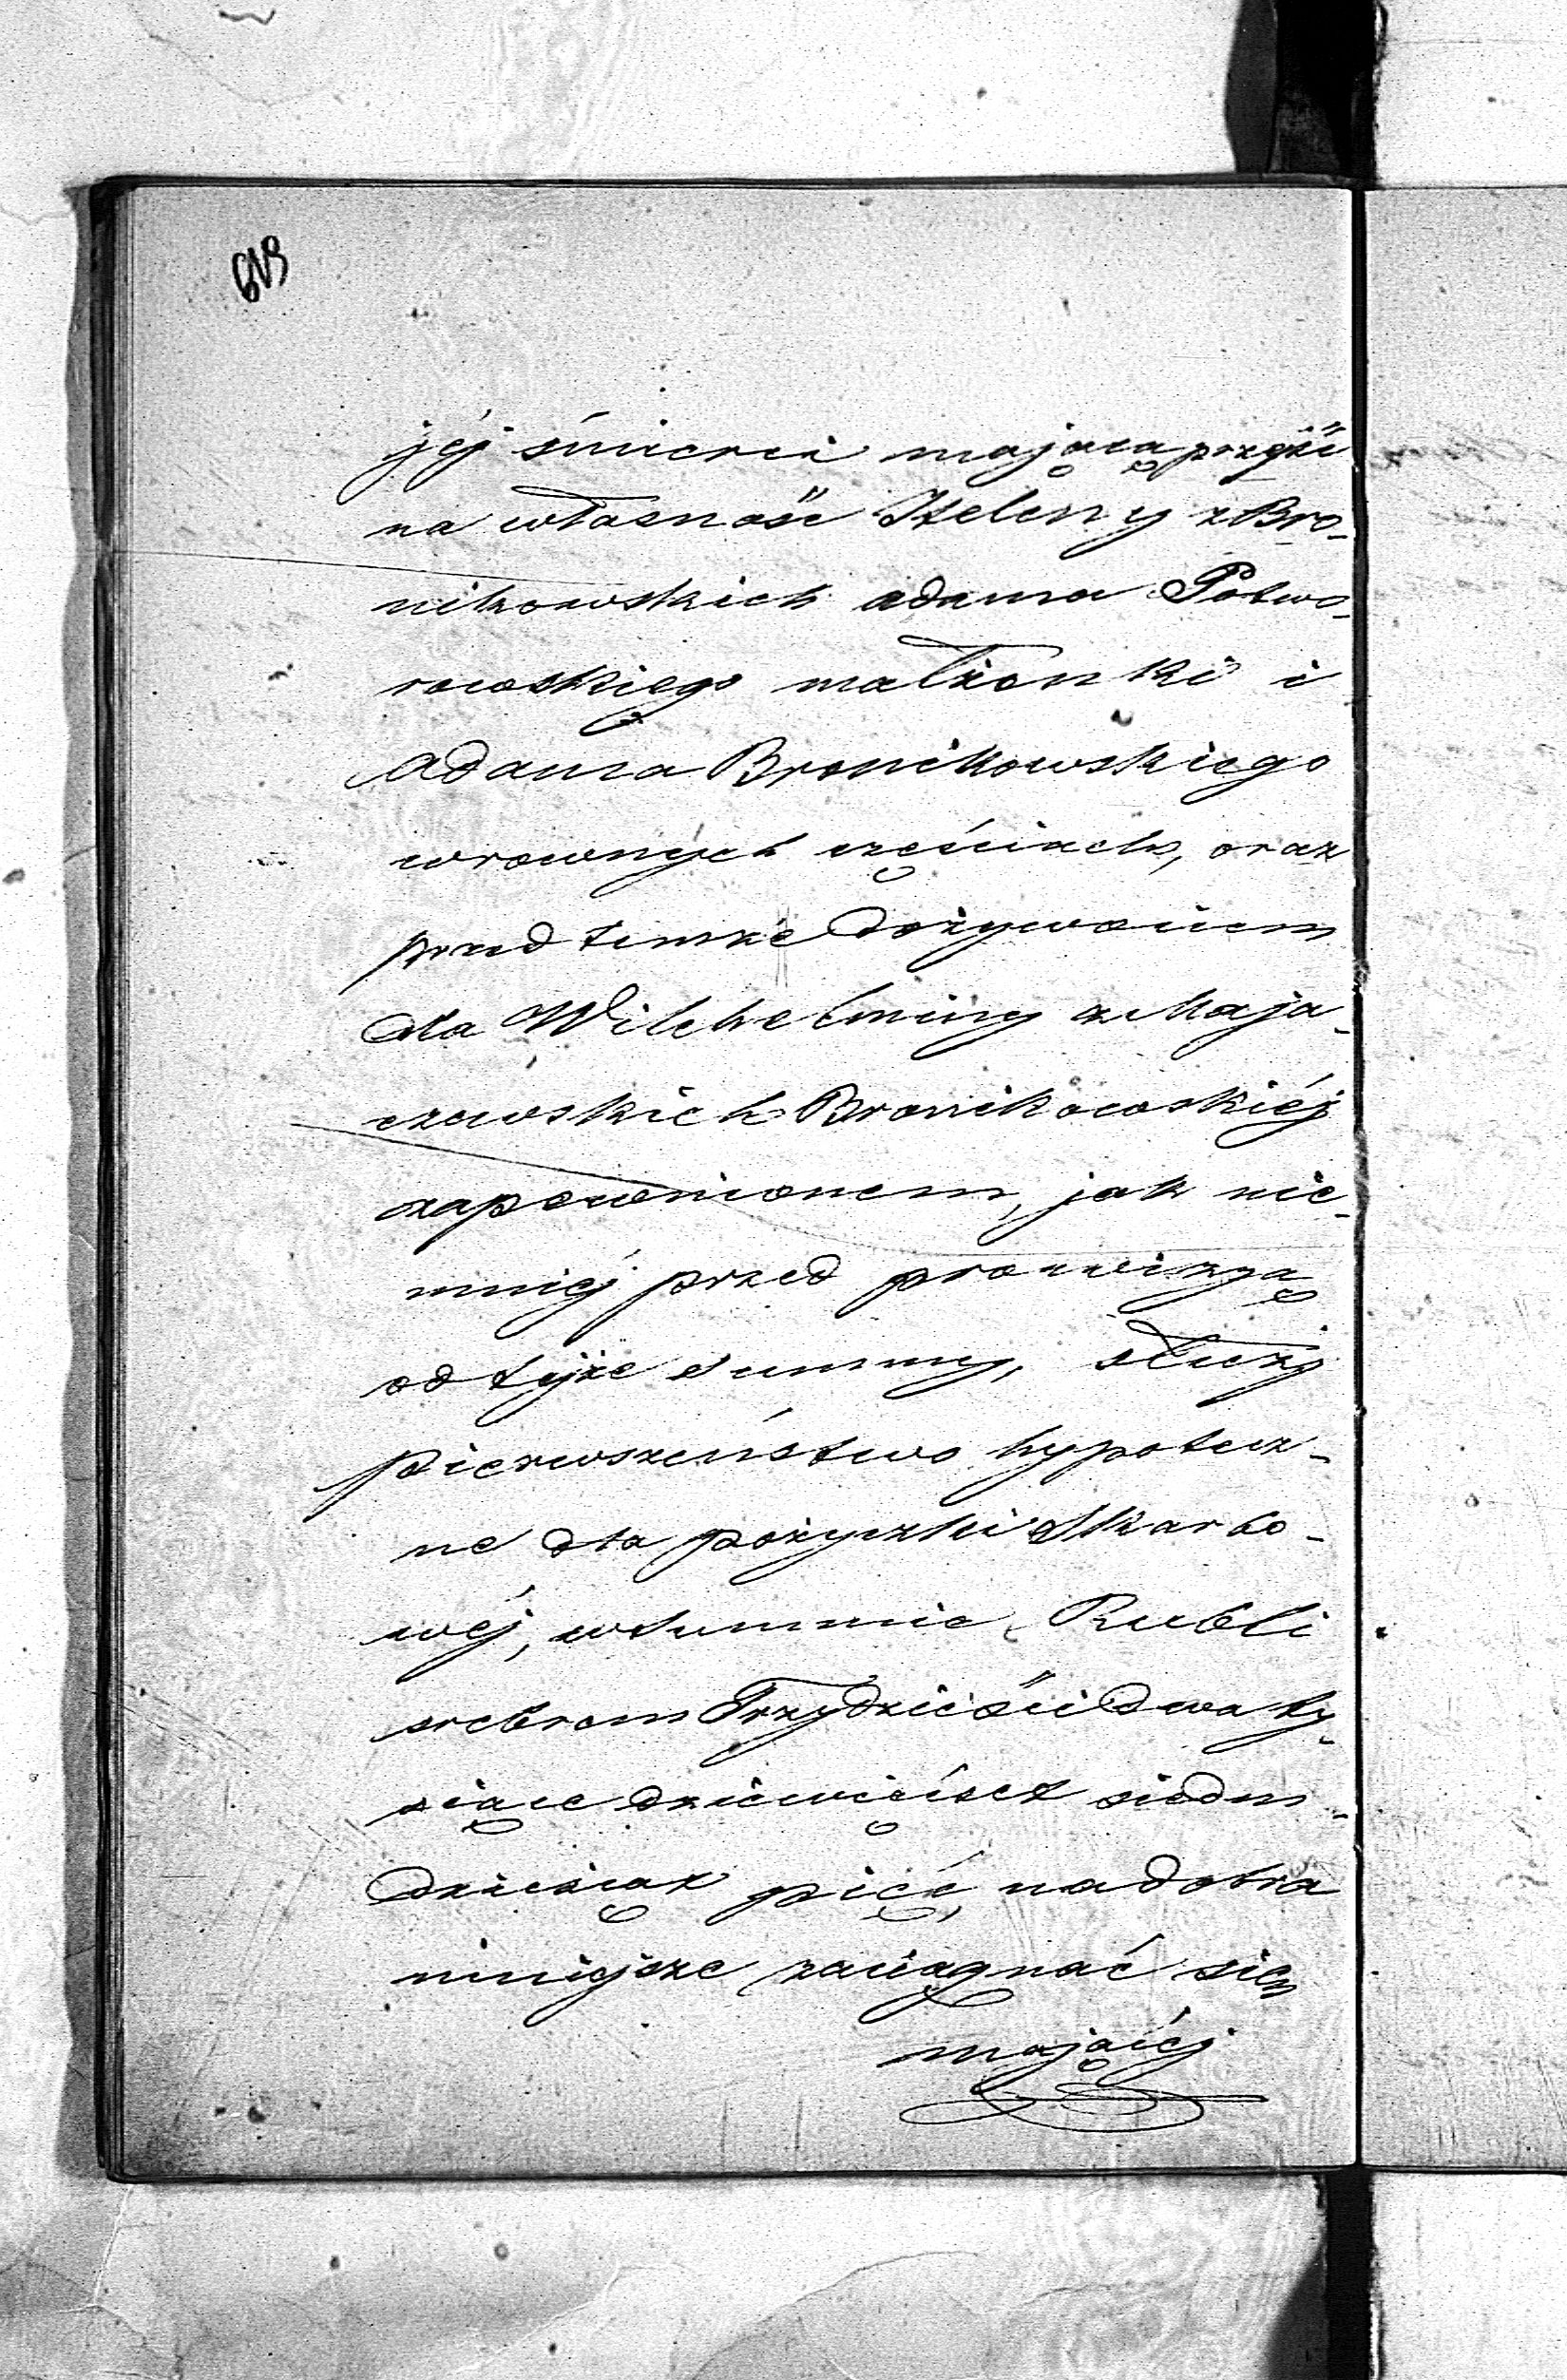 jéj śmierci mającą przejść
na własność Heleny z Bro-
nikowskich Adama Potwo-
rowskiego małżonki i
Adama Bronikowskiego
w rownych częściach, oraz
przed temże dożywociem
dla Wilhelminy z Maja-
czewskich Bronikowskiéj
zapewnionem, jak nie-
mniéj przed prowizyą
od tejże summy, służy
pierwszeństwo hypotecz-
ne dla pożyczki Skarbo-
wéj, w summie Rubli
srebrem Trzydzieści dwa ty-
siące dziewięćset siedm-
dziesiąt pięć, na dobra
niniejsze zaciągnąć się
mającéj